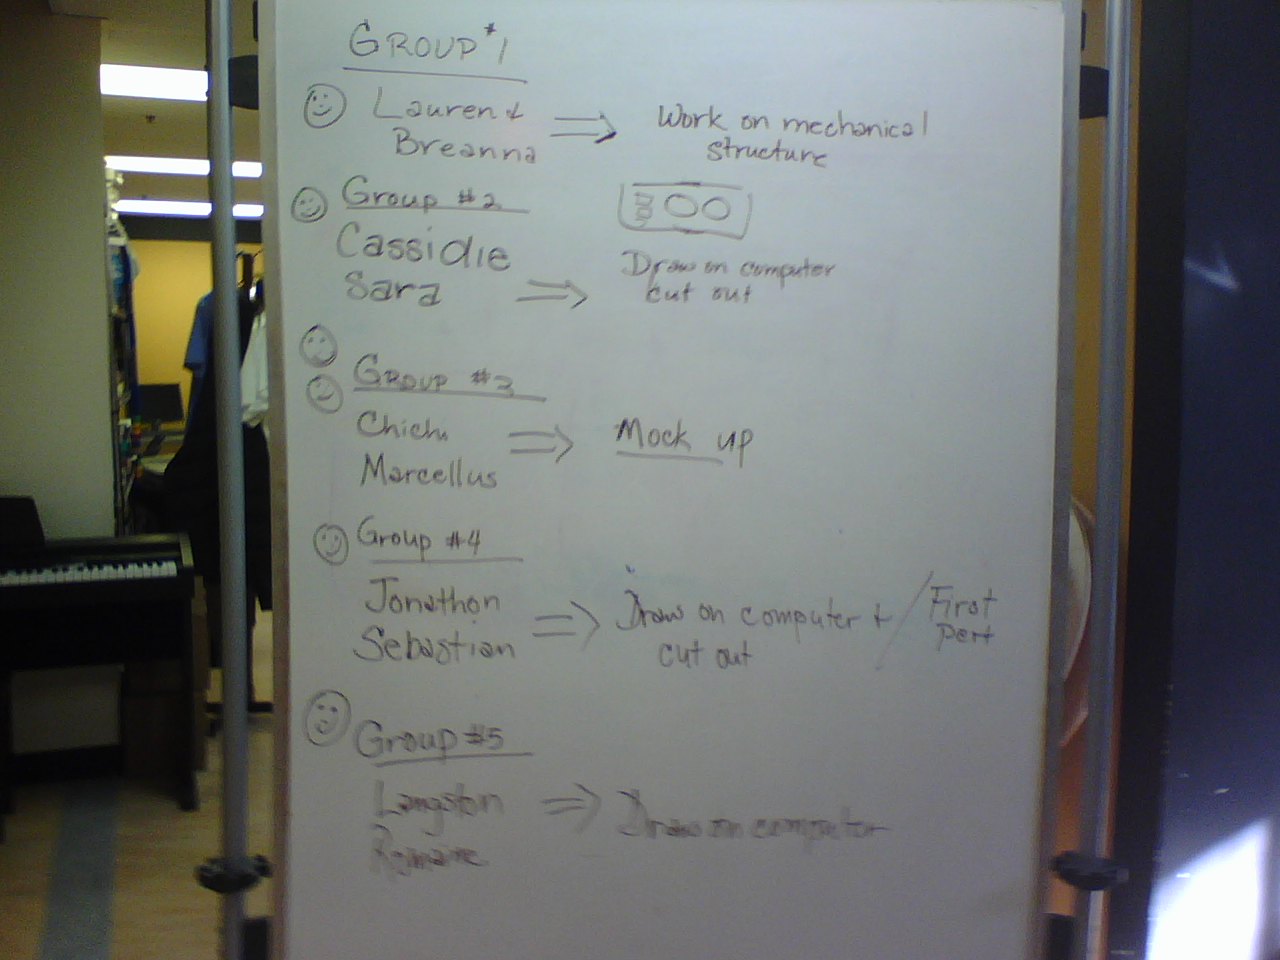 GROUP #1
Lauren &
Breanna
Work on mechanical
structure
Group #2
Cassidie
Sara
Draw on computer
cut out
GROUP #3
Chichi
Marcellus
Mock up
Group #4
Jonathon
Sebastian
Draw on computer +
cut out
/ First
Part
Group #5
Langston
Romaine
Draw on computer